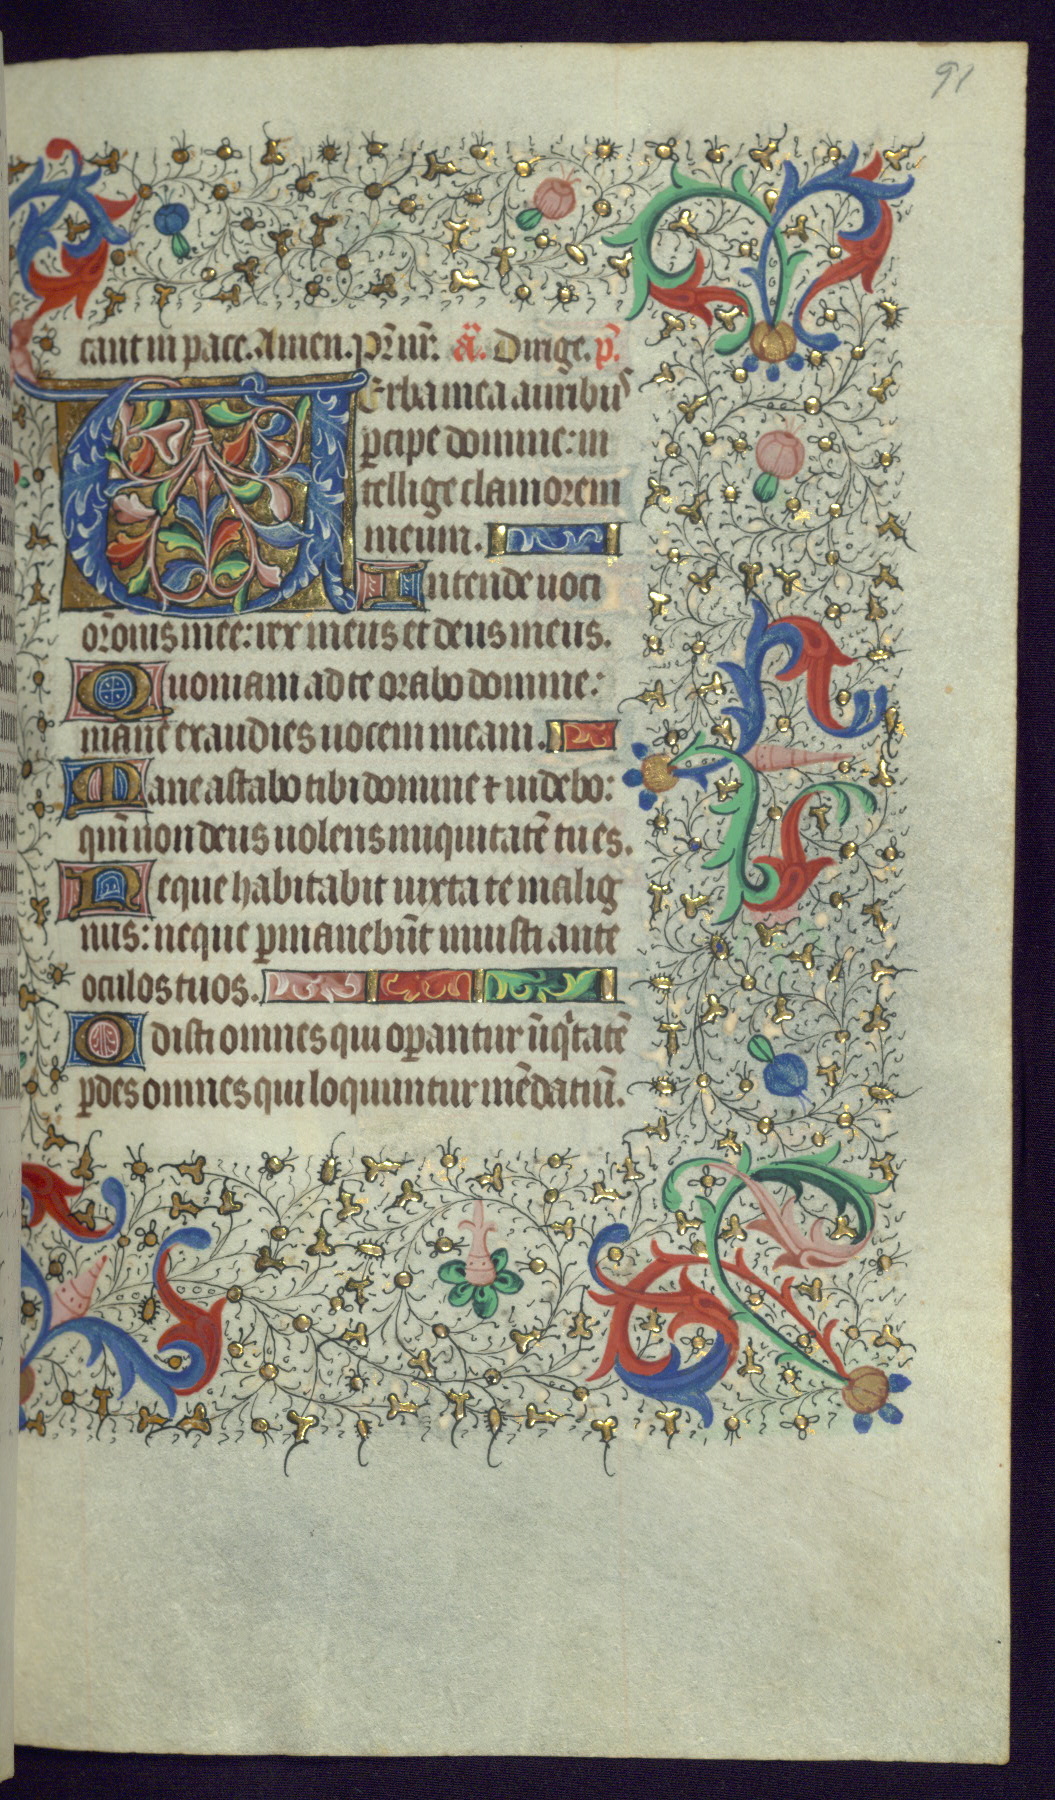 91
cant in pace. Amen. Pr̄ nr̄. ā. Dirige. p̄.
Verba mea auribus
p̄cipe domine: in
tellige clamorem
meum.
Intende uoci
or̄onis mee: rex meus et deus meus.
Quoniam ad te orabo domine:
mane exaudies uocem meam.
Mane astabo tibi domine ⁊ uidebo:
qm̄ non deus uolens iniquitatē tu es.
Neque habitabit iuxta te malig
nus: neque ꝑmanebūt iniusti ante
oculos tuos.
Odisti omnes qui oꝑantur īiqͥtatē
ꝑdes omnes qui loquuntur mēdatiū.